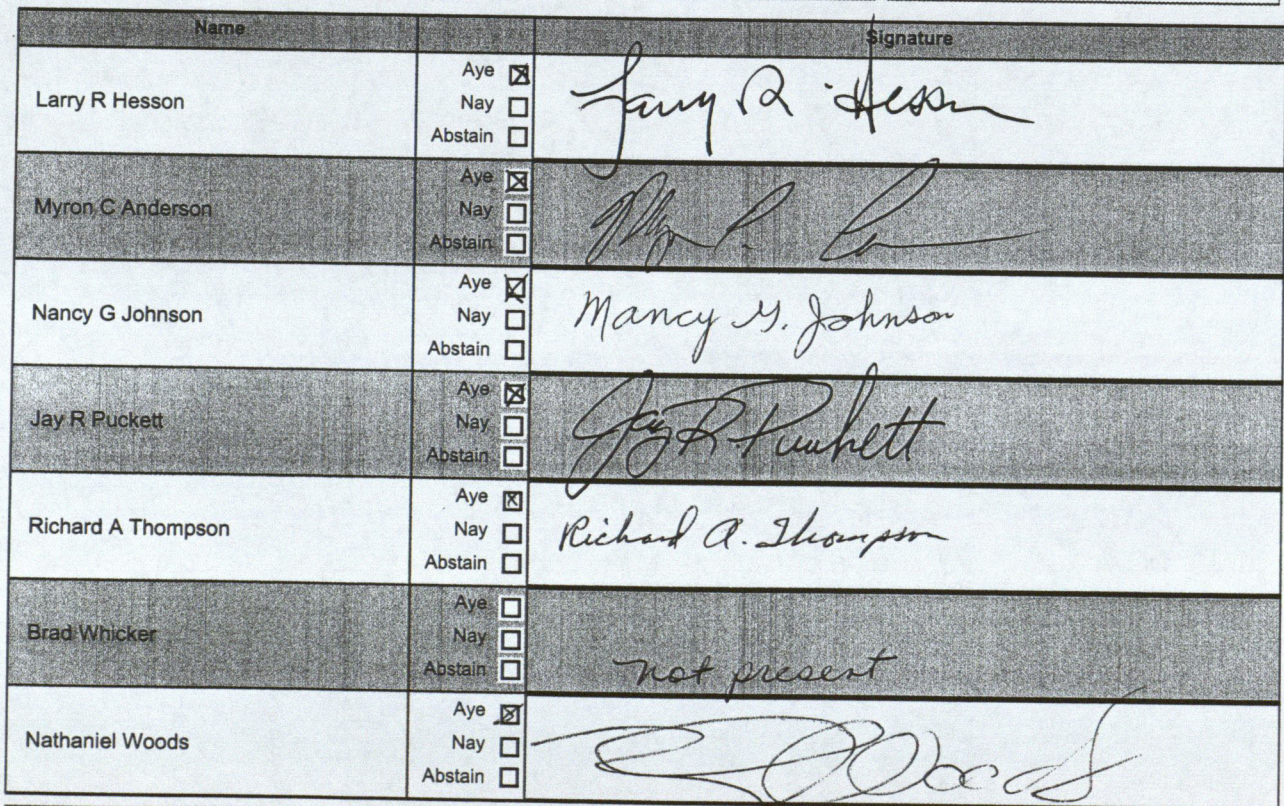 Name Signature
Larry R Hesson
Aye ☒
Nay ☐
Abstain ☐
Larry R Hesson
Myron C Anderson
Aye ☒
Nay ☐
Abstain ☐
Nancy G Johnson
Aye ☒
Nay ☐
Abstain ☐
Nancy G. Johnson
Jay R Puckett
Aye ☒
Nay ☐
Abstain ☐
Jay R. Puckett
Richard A Thompson
Aye ☒
Nay ☐
Abstain ☐
Richard A. Thompson
Brad Whicker
Aye ☐
Nay ☐
Abstain ☐
not present
Nathaniel Woods
Aye ☒
Nay ☐
Abstain ☐
Woods